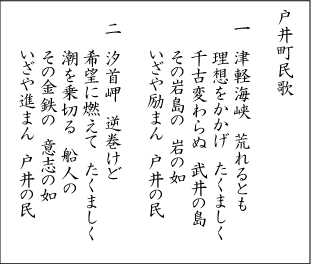 戸井町民歌
一 津軽海峡 荒れるとも
理想をかかげ たくましく
千古変わらぬ 武井の島
その岩島の 岩の如
いざや励まん 戸井の民
二 汐首岬 逆巻けど
希望に燃えて たくましく
潮を乗切る 船人の
その金鉄の 意志の如
いざや進まん 戸井の民